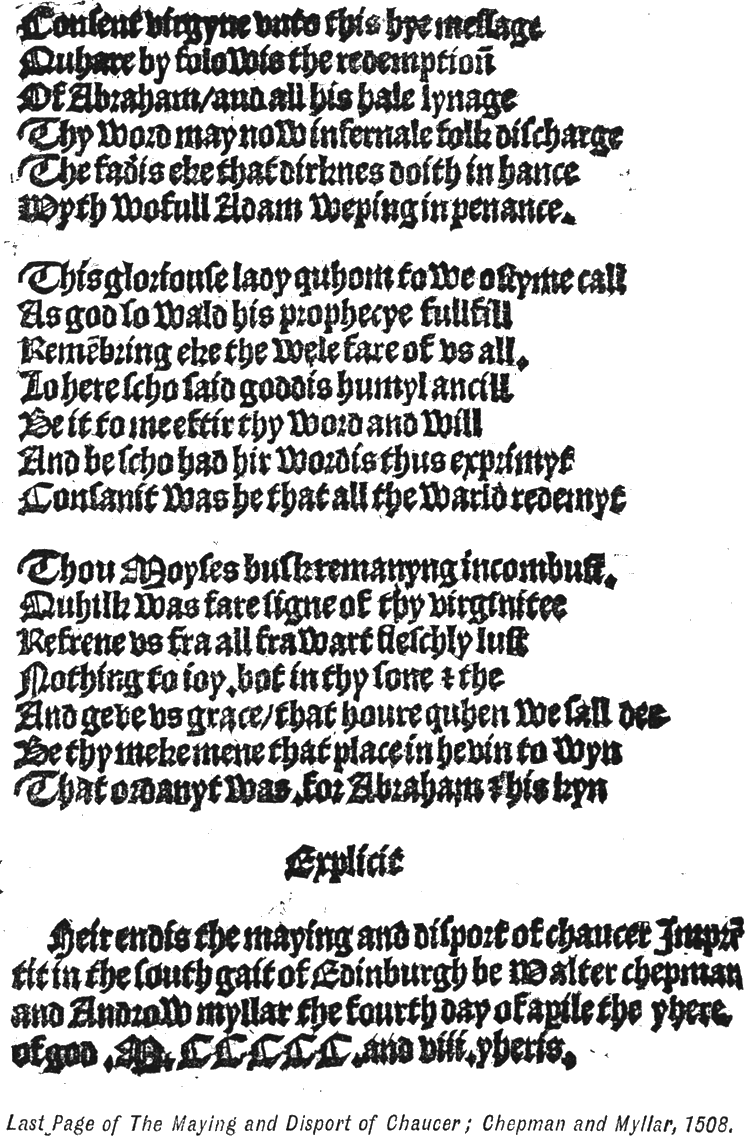 Consent virgyne vnto this hye message
Quhare by folowis the redemptioñ
Of Abraham/and all his hale lynage
Thy word may now infernale folk discharge
The fadis eke that dirknes doith in hance
Wyth wofull Adam weping in penance.
This gloriouse lady quhom to we oftyme call
As god so wald his prophecye fullfill
Remēbring eke the wele fare of vs all.
Lo here scho said goddis humyl ancill
Be it to me eftir thy word and will
And be scho had hir wordis thus exprimyt
Consanit was he that all the warld redemyt
Thou Moyses busk remanyng incombust.
Quhilk was fare signe of thy virginitee
Refrene vs fra all frawart fleschly lust
Nothing to ioy.bot in thy sone ⁊ the
And geve vs grace/that houre quhen we sall dee
Be thy meke mene that place in hevin to wyn
That ordanyt was.for Abraham ⁊ his kyn
Explicit
Heir endis the maying and disport of chaucer Imprē
tit in the south gait of Edinburgh be Walter chepman
and Androw myllar the fourth day of apile the yhere
of god .M.CCCCC.and viii.yheris.
Last Page of The Maying and Disport of Chaucer; Chepman and Myllar, 1508.